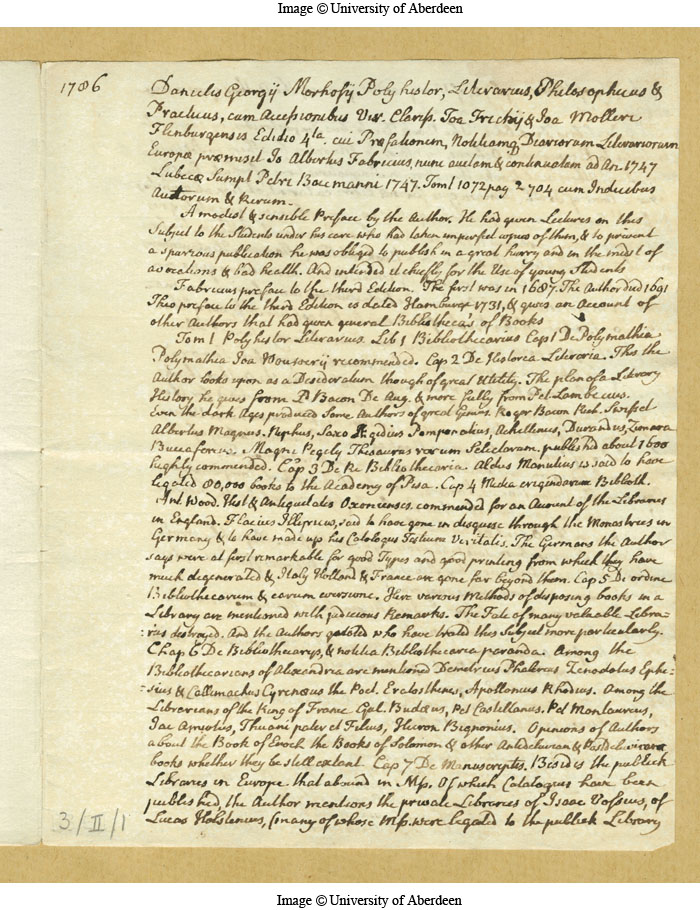 Image © University of Aberdeen
1786
Danielis Georgij Morhofij Polyhistor, Literarius, Philosophicus &
Practicus, cum Accessionibus Vir. Clariss. Joa Frickij & Joa Molleri
Flensburgensis Editio 4ta. cui Præfationem, Notitiamq Diariorum Literariorum
Europæ præmisit Jo Albertus Fabricius, nunc auctam & continuatam ad An. 1747
Lubecæ Sumpt Petri Bacmanni 1747. Tom 1 1072 pag 2 704 cum Indicibus
Autorum & Rerum.
A modest & sensible Preface by the Author. He had given Lectures on this
Subject to the Students under his care who had taken imperfect copies of them, & to prevent
a spurious publication he was obliged to publish in a great hurry and in the midst of
avocations & bad health. And intended it chiefly for the Use of young Students
Fabricius preface to the third Edition. The first was in 1687. The Author died 1691
This preface to the third Edition is dated Hamburgh 1731, & gives an Account of
other Authors that had given general Bibliotheca's of Books
Tom 1 Polyhistor Literarius. Lib 1 Bibliothecarius Cap 1 De Polymathia
Polymathia Joa Wouwerij recommended. Cap 2 De Historia Literaria. This the
Author looks upon as a Desideratum though of great Utility. The plan of a Literary
History he gives from Ld Bacon De Aug. & more fully from Pet Lambecius.
Even the dark Ages produced Some Authors of great Genius. Roger Bacon Rich. Swisset
Albertus Magnus. Niphus, Saxo Ægidius Pomponatius, Achillinus, Durandus, Zonara
Buccaferrus. Magni Pegelij Thesaurus rerum Selectarum. published about 1600
highly commended. Cap 3 De Re Bibliothecaria. Aldus Manutius is said to have
legated 80,000 books to the Academy of Pisa. Cap 4 Media erigendarum Biblioth.
Ant. Wood. Hist & Antiquitates Oxonienses commended for an Account of the Libraries
in England. Flacius Illyricus, said to have gone in disguise through the Monastries in
Germany & to have made up his Catalogus Testium Veritatis. The Germans the Author
says were at first remarkable for good Types and good printing from which they have
much degenerated & Italy Holland & France are gone far beyond them. Cap 5 De ordine
Bibliothecarum & earum eversione. Here various Methods of disposing books in a
Library are mentioned with judicious Remarks. The Fate of many valuable Libra-
ries destroyed. And the Authors quoted who have treated this Subject more particularly.
Chap 6 De Bibliothecarijs, & notitia Bibliothecaria paranda. Among the
Bibliothecarians of Alexandria are mentioned Demetrius Phalereus Zenodotus Ephe-
sius & Callimachus Cyrenæus the Poet. Eratosthenes, Apollonius Rhodius. Among the
Librarians of the King of France Gul. Budæus, Pet Castellanus. Pet Montaureus,
Jac Amyotus, Thuani pater et Filius, Hieron Bignonius. Opinions of Authors
about the Book of Enoch the Books of Solomon & other Antediluvian & Postdiluvian
books whether they be still extant. Cap 7 De Manuscriptis. Besides the publick
Libraries in Europe that abound in Mss. Of which Catalogues have been
published, the Author mentions the private Libraries of Isaac Vossius, of
Lucas Holstenius, (many of whose Mss. were legated to the publick Library
3/II/1
Image © University of Aberdeen